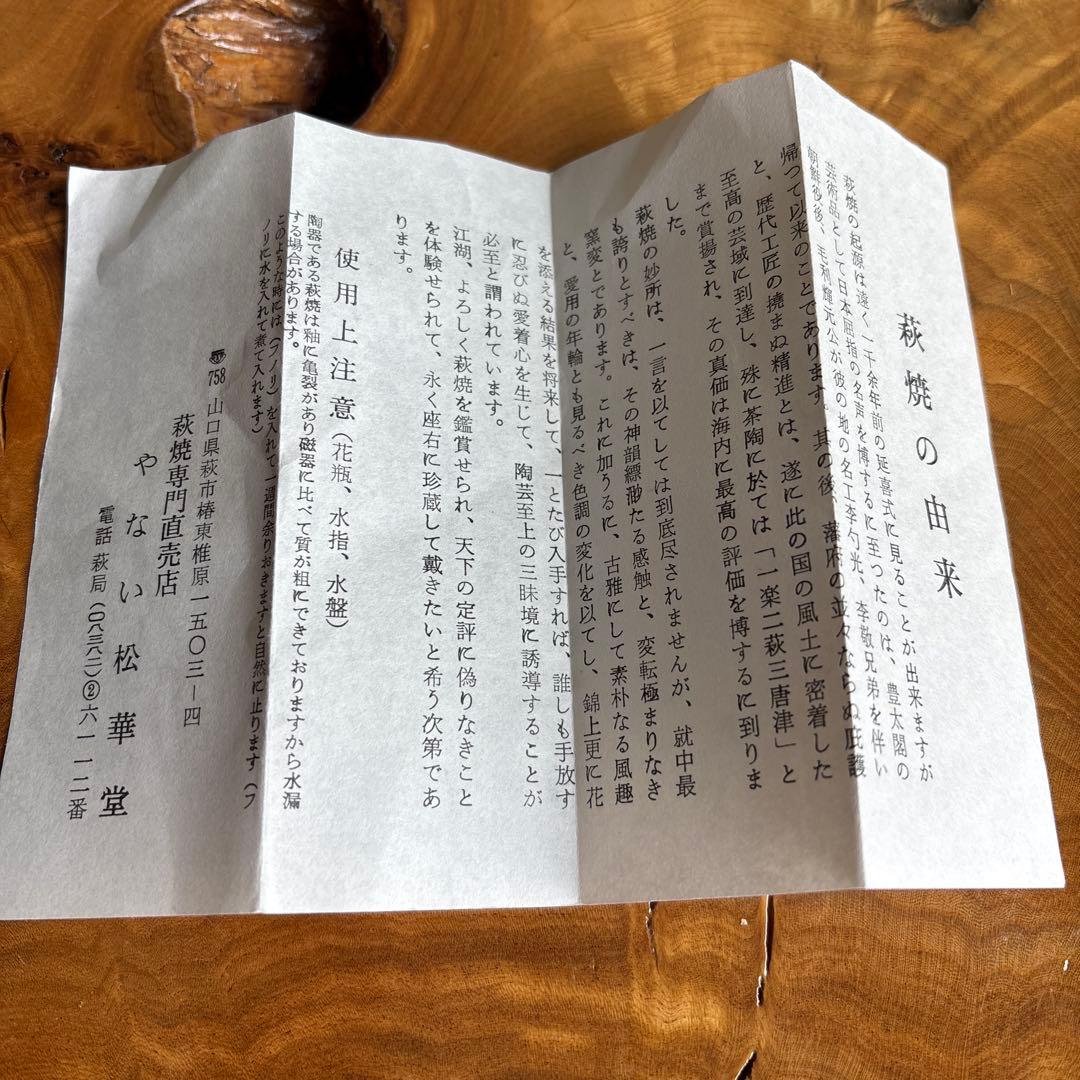 萩焼の由来
萩焼の起源は遠く一千余年前の延喜式に見ることが出来ますが
芸術品として日本屈指の名声を博するに至つたのは、豊太閤の
朝鮮役後、毛利輝元公が彼の地の名工李勺光、李敬兄弟を伴い
帰つて以来のことであります。其の後、藩府の並々ならぬ庇護
と、歴代工匠の撓まぬ精進とは、遂に此の国の風土に密着した
至高の芸域に到達し、殊に茶陶に於ては「一楽二萩三唐津」と
まで賞揚され、その真価は海内に最高の評価を博するに到りま
した。
萩焼の妙所は、一言を以てしては到底尽されませんが、就中最
も誇りとすべきは、その神韻縹渺たる感触と、変転極まりなき
窯変とであります。これに加うるに、古雅にして素朴なる風趣
と、愛用の年輪とも見るべき色調の変化を以てし、錦上更に花
を添える結果を将来して、一とたび入手すれば、誰しも手放す
に忍びぬ愛着心を生じて、陶芸至上の三昧境に誘導することが
必至と謂われています。
江湖、よろしく萩焼を鑑賞せられ、天下の定評に偽りなきこと
を体験せられて、永く座右に珍蔵して戴きたいと希う次第であ
ります。
使用上注意(花瓶、水指、水盤)
陶器である萩焼は釉に亀裂があり磁器に比べて質が粗にできておりますから水漏
する場合があります。
このような時には(フノリ)を入れて一週間余りおきますと自然に止ります(フ
ノリに水を入れて煮て入れます)
〠758 山口県萩市椿東椎原一五〇三ー四
萩焼専門直売店
やない松華堂
電話 萩局(〇八三八二)②六一一二番